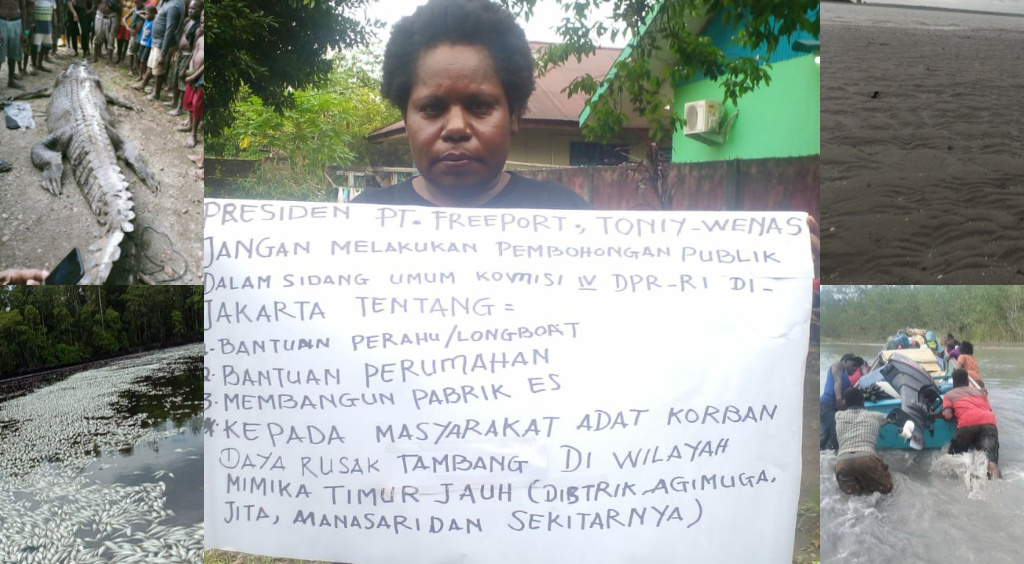 PRESIDEN PT. FREEPORT., TONIY-WENAS
JANGAN MELAKUKAN PEMBOHONGAN PUBLIK
DALAM SIDANG UMUM KOMISI IV DPR-RI DI-
JAKARTA TENTANG =
1. BANTUAN PERAHU/LONGBOAT
2. BANTUAN PERUMAHAN
3. MEMBANGUN PABRIK ES
4. KEPADA MASYARAKAT ADAT KORBAN
DAYA RUSAK TAMBANG DI WILAYAH
MIMIKA TIMUR JAUH (DISTRIK AGIMUGA,
JITA, MANASARI DAN SEKITARNYA)